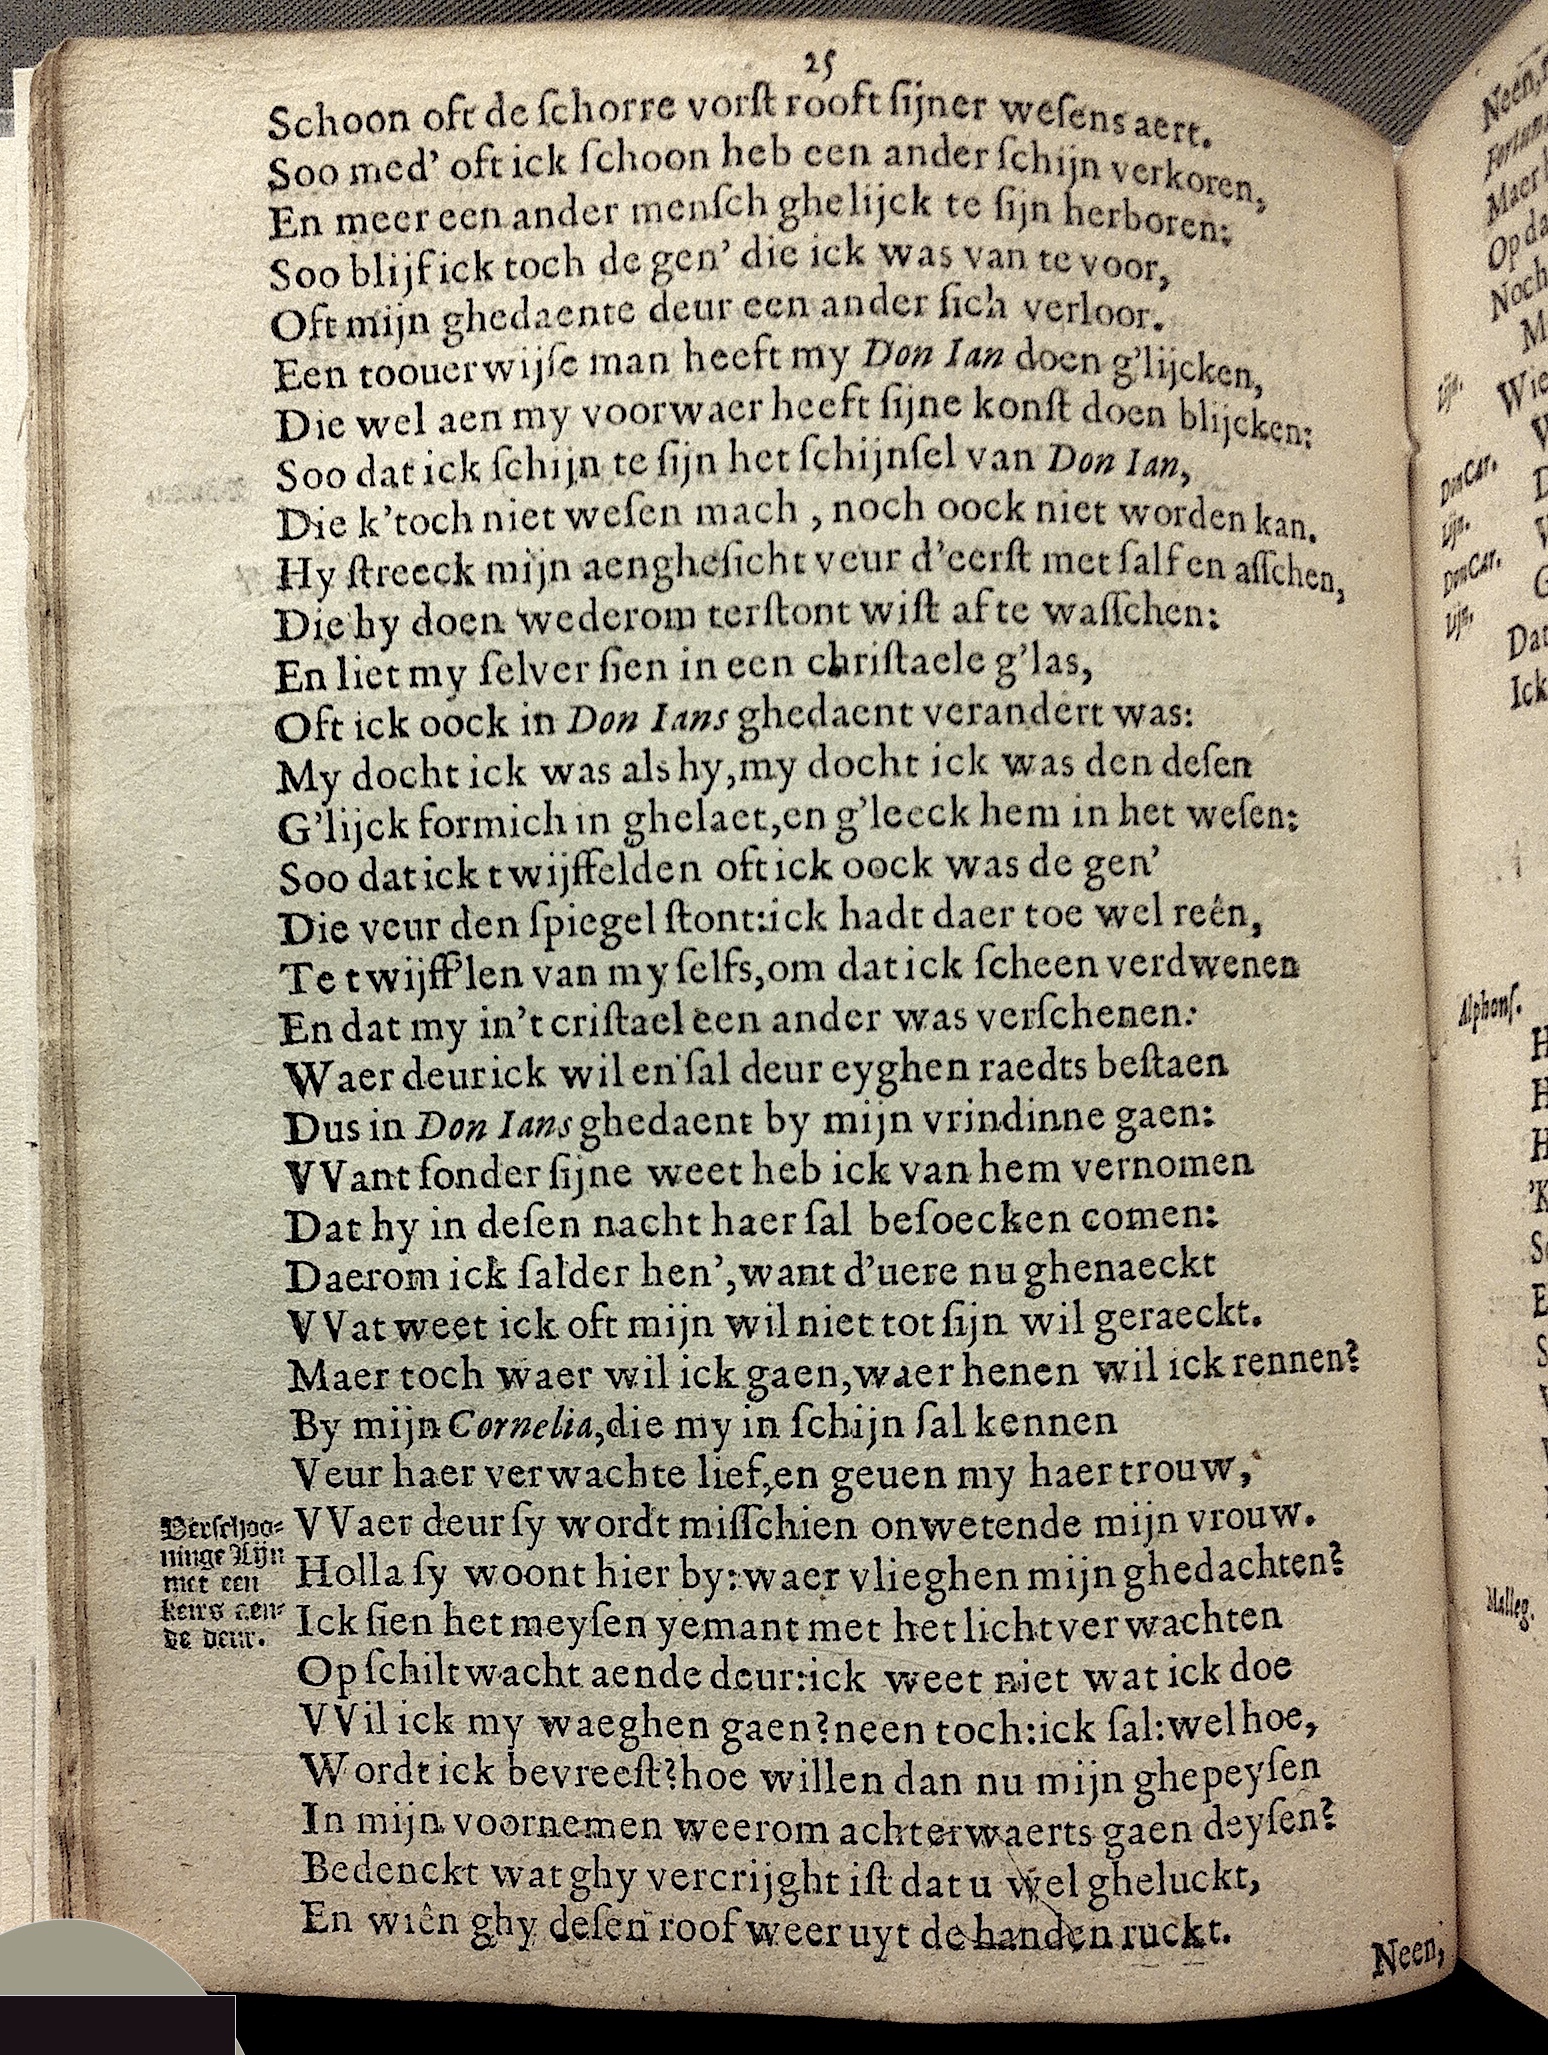 25
Schoon oft de ſchorre vorſt rooft ſijner weſens aert.
Soo med’ oft ick ſchoon heb een ander ſchijn verkoren,
En meer een ander menſch ghelijck te ſijn herboren:
Soo blijf ick toch de gen’ die ick was van te voor,
Oft mijn ghedaente deur een ander ſich verloor.
Een toouerwijſe man heeft my Don Ian doen g’lijcken,
Die wel aen my voorwaer heeft ſijne konſt doen blijcken:
Soo dat ick ſchijn te ſijn het ſchijnſel van Don Ian,
Die k’toch niet weſen mach , noch oock niet worden kan.
Hy ſtreeck mijn aengheſicht veur d’eerſt met ſalf en aſſchen,
Die hy doen wederom terſtont wiſt af te waſſchen:
En liet my ſelver ſien in een chriſtaele g’las,
Oft ick oock in Don Ians ghedaent verandert was:
My docht ick was als hy,my docht ick was den deſen
G’lijck formich in ghelaet,en g’leeck hem in het weſen:
Soo dat ick twijffelden oft ick oock was de gen’
Die veur den ſpiegel ſtont:ick hadt daer toe wel reên,
Te twijff’len van my ſelfs,om dat ick ſcheen verdwenen
En dat my in’t criſtael een ander was verſchenen:
Waer deur ick wil en ſal deur eyghen raedts beſtaen
Dus in Don Ians ghedaent by mijn vrindinne gaen:
VVant ſonder ſijne weet heb ick van hem vernomen
Dat hy in deſen nacht haer ſal beſoecken comen:
Daerom ick ſalder hen’,want d’uere nu ghenaeckt
VVat weet ick oft mijn wil niet tot ſijn wil geraeckt.
Maer toch waer wil ick gaen,waer henen wil ick rennen?
By mijn Cornelia,die my in ſchijn ſal kennen
Veur haer verwachte lief,en geuen my haer trouw,
VVaer deur ſy wordt miſſchien onwetende mijn vrouw.
Holla ſy woont hier by:waer vlieghen mijn ghedachten?
Ick ſien het meyſen yemant met het licht verwachten
Op ſchiltwacht aende deur:ick weet niet wat ick doe
VVil ick my waeghen gaen?neen toch:ick ſal:wel hoe,
Wordt ick bevreeſt?hoe willen dan nu mijn ghepeyſen
In mijn voornemen weerom achterwaerts gaen deyſen?
Bedenckt wat ghy vercrijght iſt dat u wel gheluckt,
En wiên ghy deſen roof weer uyt de handen ruckt.
Neen,
Verſchoo-
ninge Lijn
met een
keirs aen-
de deur.
Neen,
Maer
Op da
Noch
M
Wie
Lijn.
Don Car.
Lijn.
Don Car.
Lijn.
Dat
Ick
Alphonſ.
Malleg.